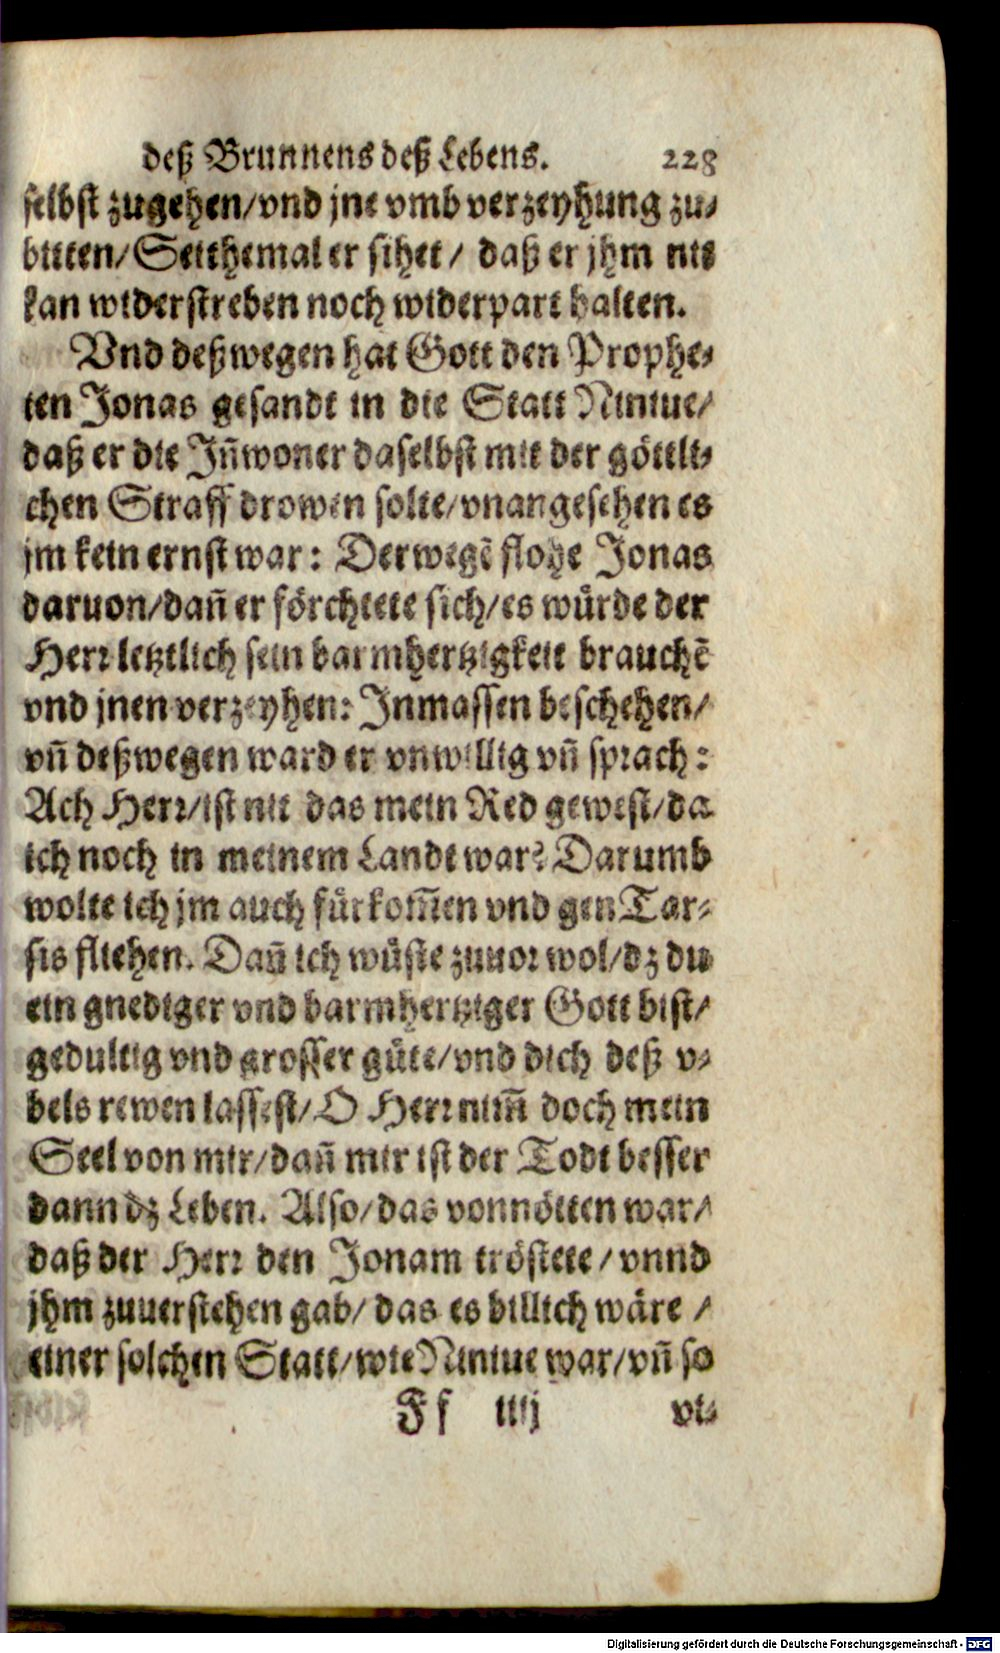 deß Brunnens deß Lebens. 228
selbst zugehen/vnd jne vmb verzeyhung zu-
bitten/Seithemal er sihet/ daß er jhm nit
kan widerstreben noch widerpart halten.
Vnd deßwegen hat Gott den Prophe-
ten Jonas gesandt in die Statt Niniue/
daß er die Jñwoner daselbst mit der göttli-
chen Straff drowen solte/vnangesehen es
jm kein ernst war: Derwegẽ flohe Jonas
daruon/dañ er förchtete sich/es würde der
Herr letztlich sein barmhertzigkeit brauchẽ
vnd jnen verzeyhen: Inmassen beschehen/
vñ deßwegen ward er vnwillig vñ sprach:
Ach Herr/ist nit das mein Red gewest/da
ich noch in meinem Landt war? Darumb
wolte ich jm auch fürkom̃en vnd gen Tar-
sis fliehen. Dañ ich wüste zuuor wol/dz du
ein gnediger vnd barmhertziger Gott bist/
gedultig vnd grosser güte/vnd dich deß v-
bels rewen lassest/O Herr nim̃ doch mein
Seel von mir/dañ mir ist der Todt besser
dann dz Leben. Also/das vonnötten war/
daß der Herr den Jonam tröstete/vnnd
jhm zuuerstehen gab/das es billich wäre/
einer solchen Statt/wie Niniue war/vñ so
Ff iiij vi-
Digitalisierung gefördert durch die Deutsche Forschungsgemeinschaft - DFG